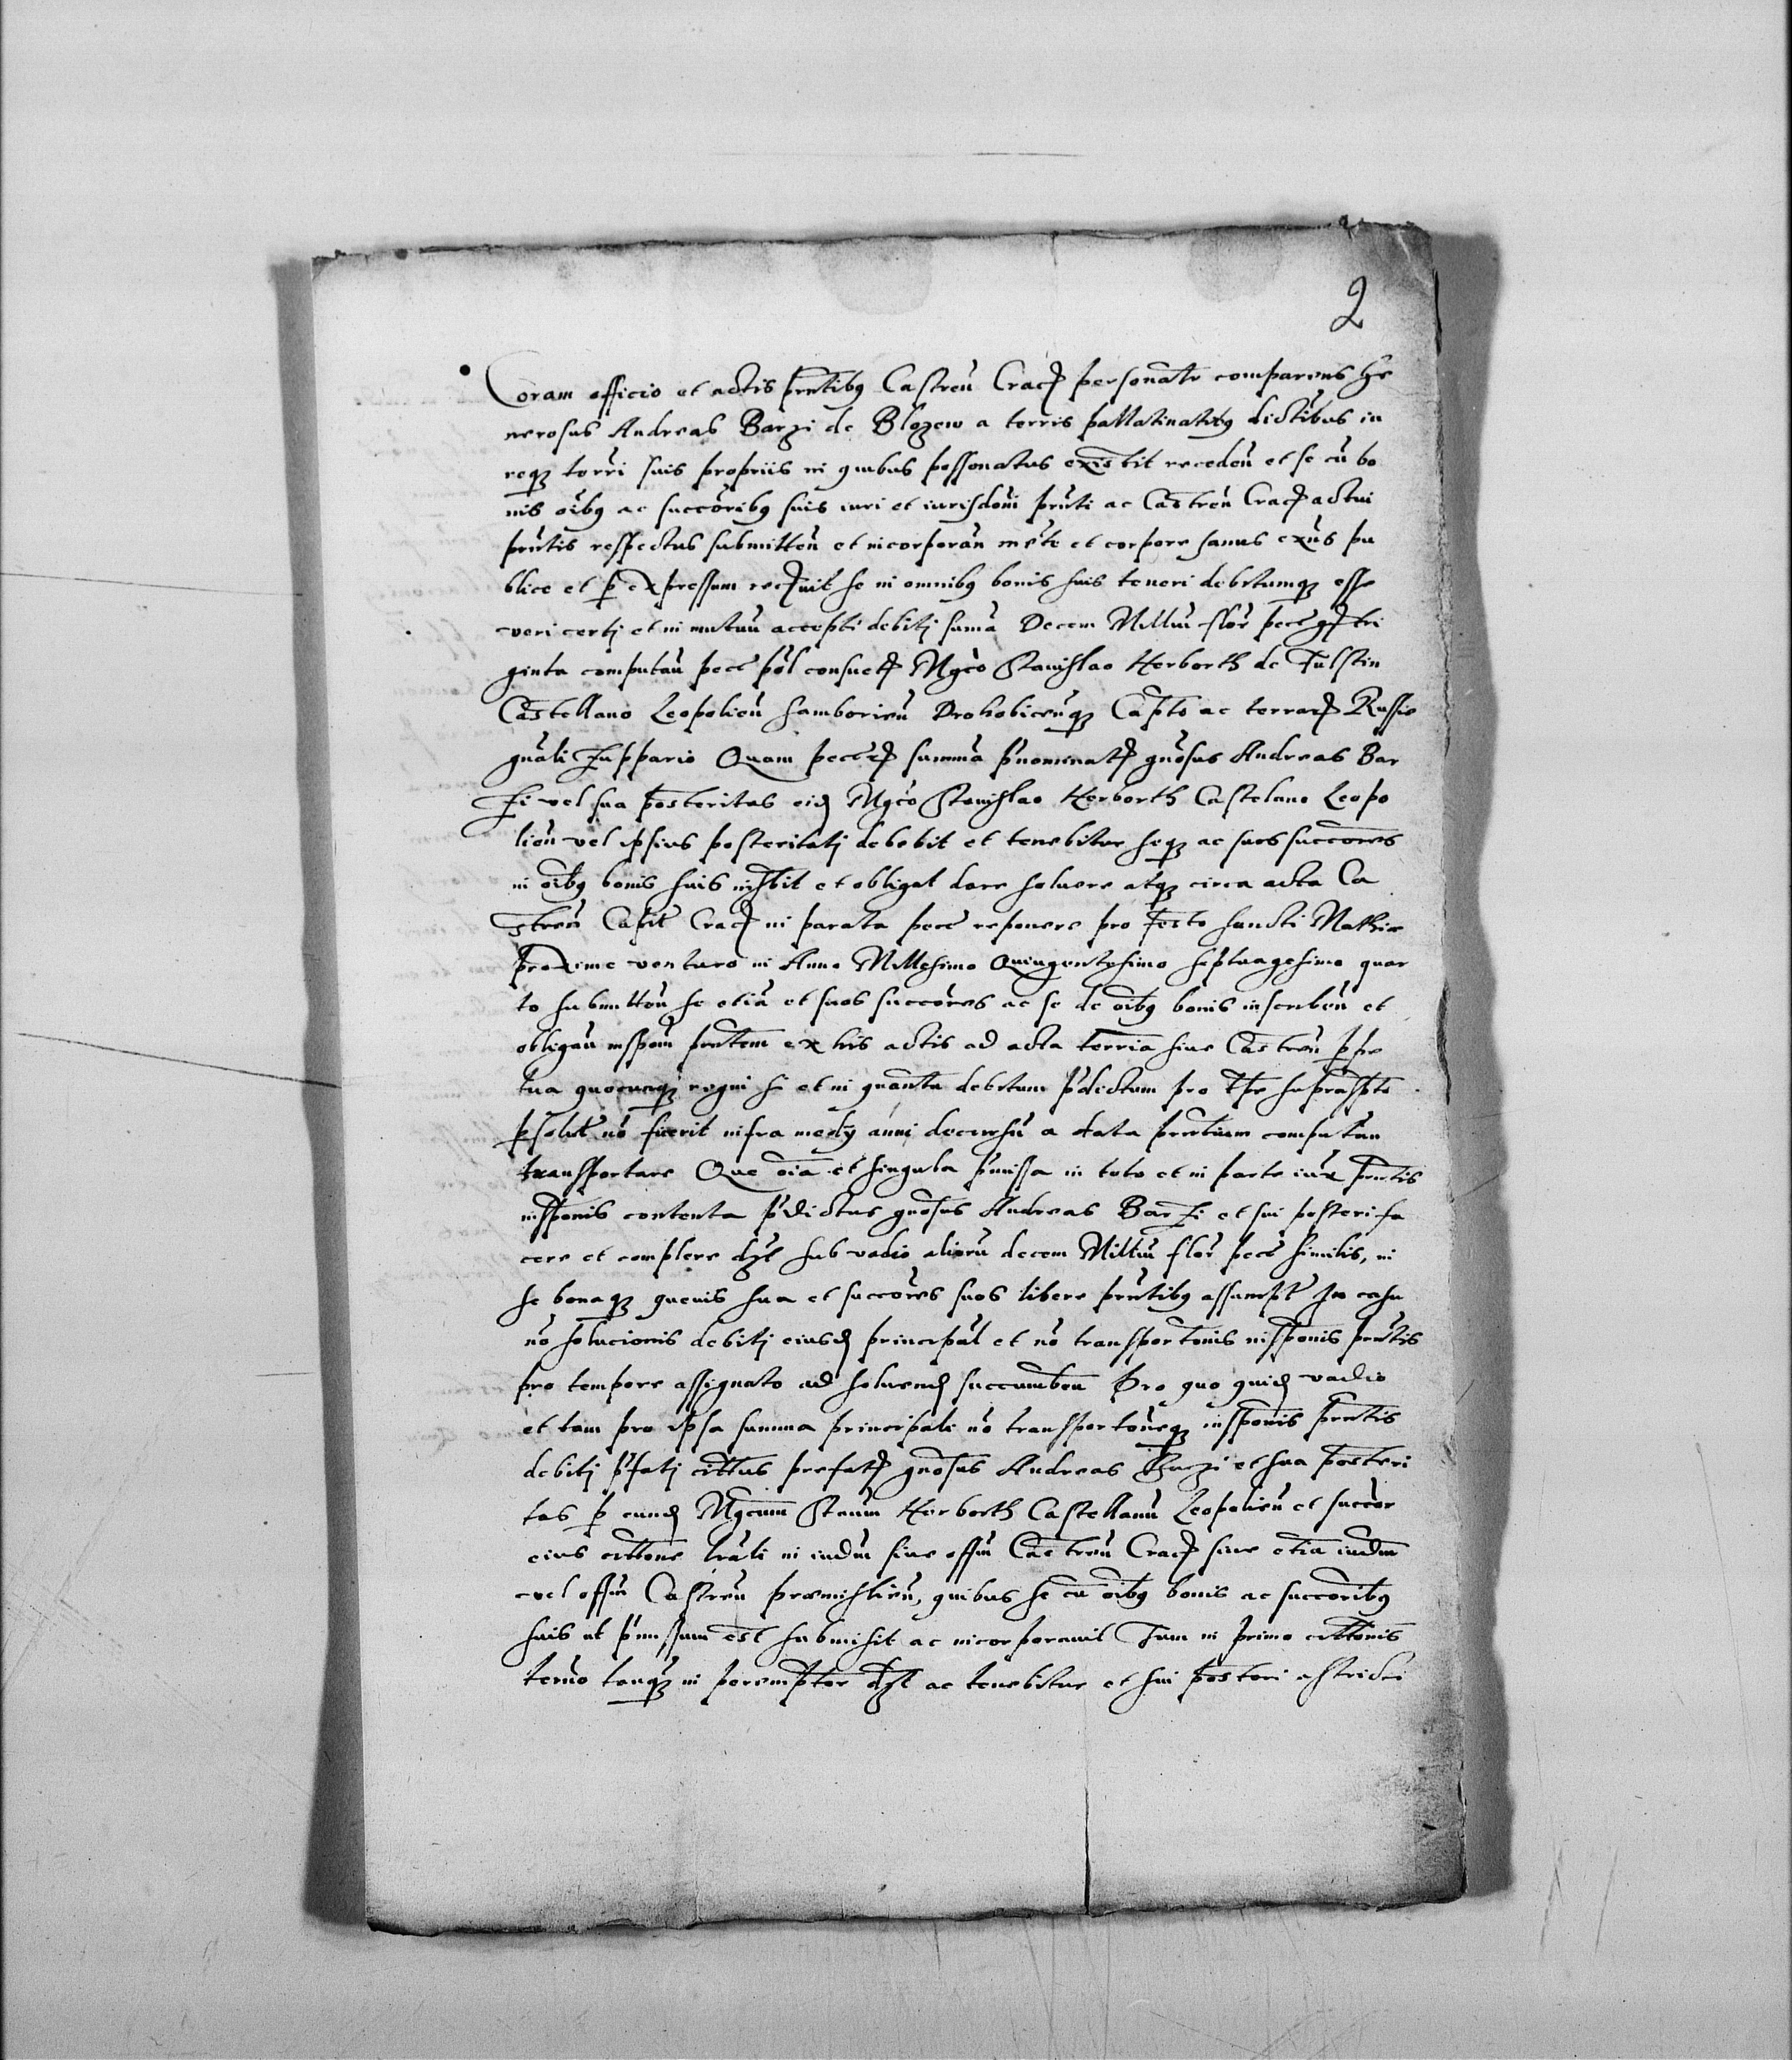 2
Coram officio et actis pñtibus Castreñ Cracoᵽ personalr comparens Ge
nerosus Andreas Barzi de Blozew a terris pallatinatibus districtibus iu
reque terri suis propriis in quibus possonatus existit recedeñ et se cũ bo
nis oĩbus ac succoribus suis iuri et iurisdoni pñti ac Castreñ Cracoᵽ actui
pñtis respectus submitteñ et incorporañ mẽte et corpore sanus exñs pu
blice et ꝑ expressum recoᵽuit se in omnibus bonis suis teneri debitumque esse
veri certi et in mutuũ accepti debiti sumã Decem Milliũ flor pecc tri
ginta computañ pecc põl consuetᵽ Mgco Stanislao Herborth de Fulstin
Castellano Leopolieñ Samborieñ Drohobiceñque Capto ac terrarᵽ Russie
gnãli Zuppario Quam pecc summã pñominatᵽ gnosus Andreas Bar
zi vel sua posteritas eidᵽ Mgco Stanislao Herborth Castelano Leopo
lieñ vel ipsius posteritati debebit et tenebitur seque ac suos succores
in oĩbus bonis suis inscrbit et obligat dare solvere atque circa acta Ca
streñ Capit Cracoᵽ in parata pecc reponere pro festo sancti Mathie
proxime venturo in Anno Millesimo Quingentesimo septuagesimo quar
to submitteñ se etiã et suos succores ac se de oĩbus bonis inscribeñ et
obligañ inscrpoñ pñtem ex his actis ad acta terria sive Castreñ ꝑpe
tua quecunque regni si et in quantũ debitum pdictum pro tpe suprascrpto
ꝑsolut nõ fuerit infra medy anni decursũ a data pñtium computañ
transportare Que oĩa et singula pmissa in toto et in parte iux pñtis
inscrponis contenta pdictus gnosus Andreas Barzi et sui posteri fa
cere et complere dzt sub vadio aliorũ decem Milliũ flor pecc similis, in
se bonaque quevis sua et succores suos libere pñtibus assumpt In casu
nõ solucionis debiti eiusdᵽ principal et nõ transportonis inscrponis pñtis
pro tempore assignato ad solvendᵽ succumbeñ Pro quo quidᵽ vadio
et tam pro ipsa summa principali nõ transportoneque inscrponis pñtis
debiti pfati citatus prefatᵽ gnosus Andreas Barzi et sua posteri
tas ꝑ eundᵽ Mgcum Staum Herborth Castellanũ Leopolieñ et succor
eius cittone lrali in iudiũ sive offiũ Castreñ Cracoᵽ sive etiã iudiũ
vel offiũ Castreñ premislieñ, quibus se cũ oĩbus bonis ac succoribus
suis ut pmissum est submisit ac incorporavit Tum in primo cittonis
termo tanque in peremptor dzt ac tenebitur et sui posteri astricti